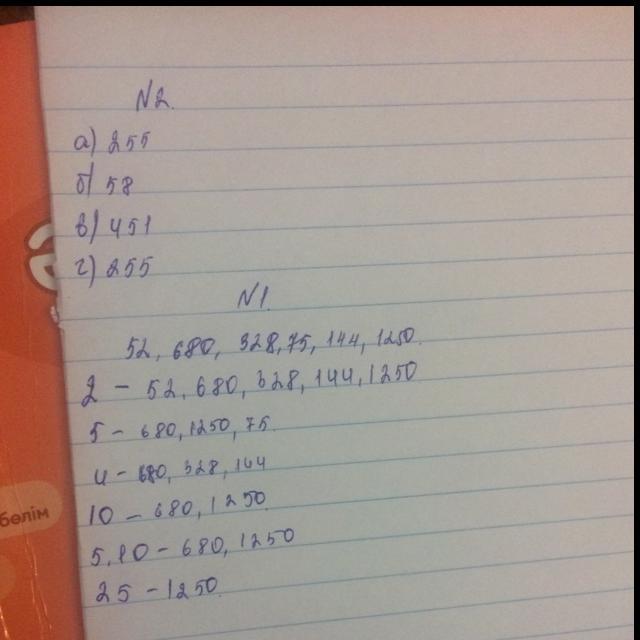 N2.
а) 255
б) 58
в) 451
г) 255
N1.
52, 680, 328, 75, 144, 1250.
2 - 52, 680, 328, 144, 1250
5 - 680, 1250, 75.
4 - 680, 328, 144
10 - 680, 1250.
5,10 - 680, 1250
25 - 1250.
бөлім